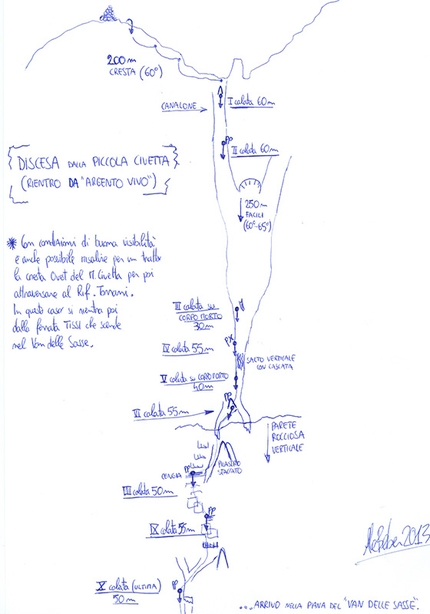 200 m
CRESTA (60°)
CANALONE
I calata 60m
II calata 60m
DISCESA DALLA PICCOLA CIVETTA
(RIENTRO DA "ARGENTO VIVO")
250 m
FACILI
(60°-65°)
* Con condizioni di buona visibilità
è anche possibile risalire per un tratto
la cresta Ovest del M. Civetta per poi
attraversare al Rif. Torrani.
In questo caso si rientra poi
dalla ferrata Tissi che scende
nel Van delle Sasse.
III calata su
CORPO MORTO
30m
IV calata 55m
SALTO VERTICALE
CON CASCATA
V calata su CORPO MORTO
40m
VI calata 55m
PARETE
ROCCIOSA
VERTICALE
PILASTRO
STACCATO
CENGIA
VIII calata 50m
IX calata 55m
X calata (ULTIMA)
50m
2013
... ARRIVO NELLA PIANA DEL "VAN DELLE SASSE".